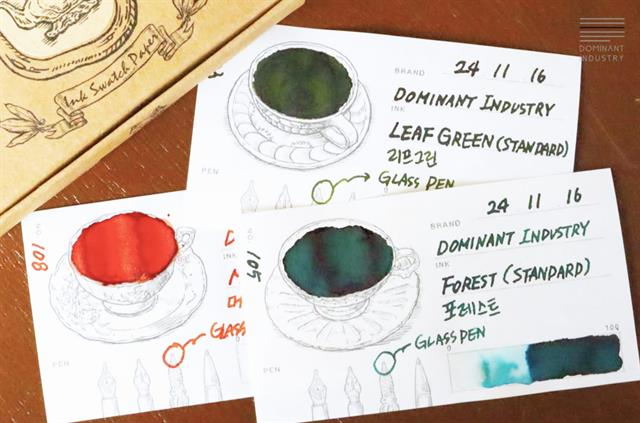 Ink Swatch Paper
DOMINANT
INDUSTRY
BRAND
24 11 16
DOMINANT INDUSTRY
INK
LEAF GREEN (STANDARD)
리프그린
PEN
GLASS PEN
BRAND
24 11 16
DOMINANT INDUSTRY
INK
FOREST (STANDARD)
포레스트
PEN
GLASS PEN
0
100
105
108
INK
PEN
GLASS